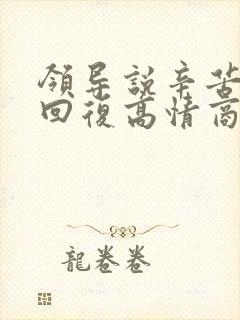 領导說辛苦
回復高情商
龍卷卷